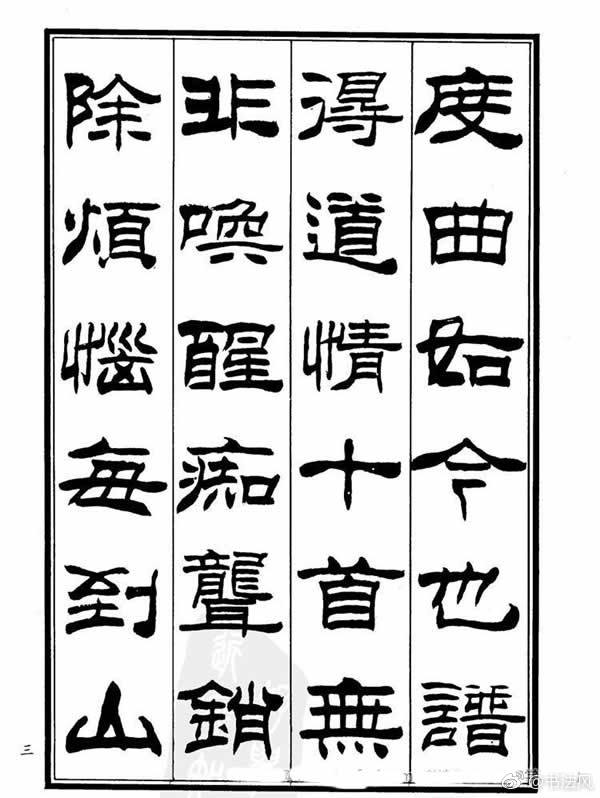 度曲如今也譜
得道情十首無
非喚醒痴聾銷
除煩惱每到山
三
@书法风